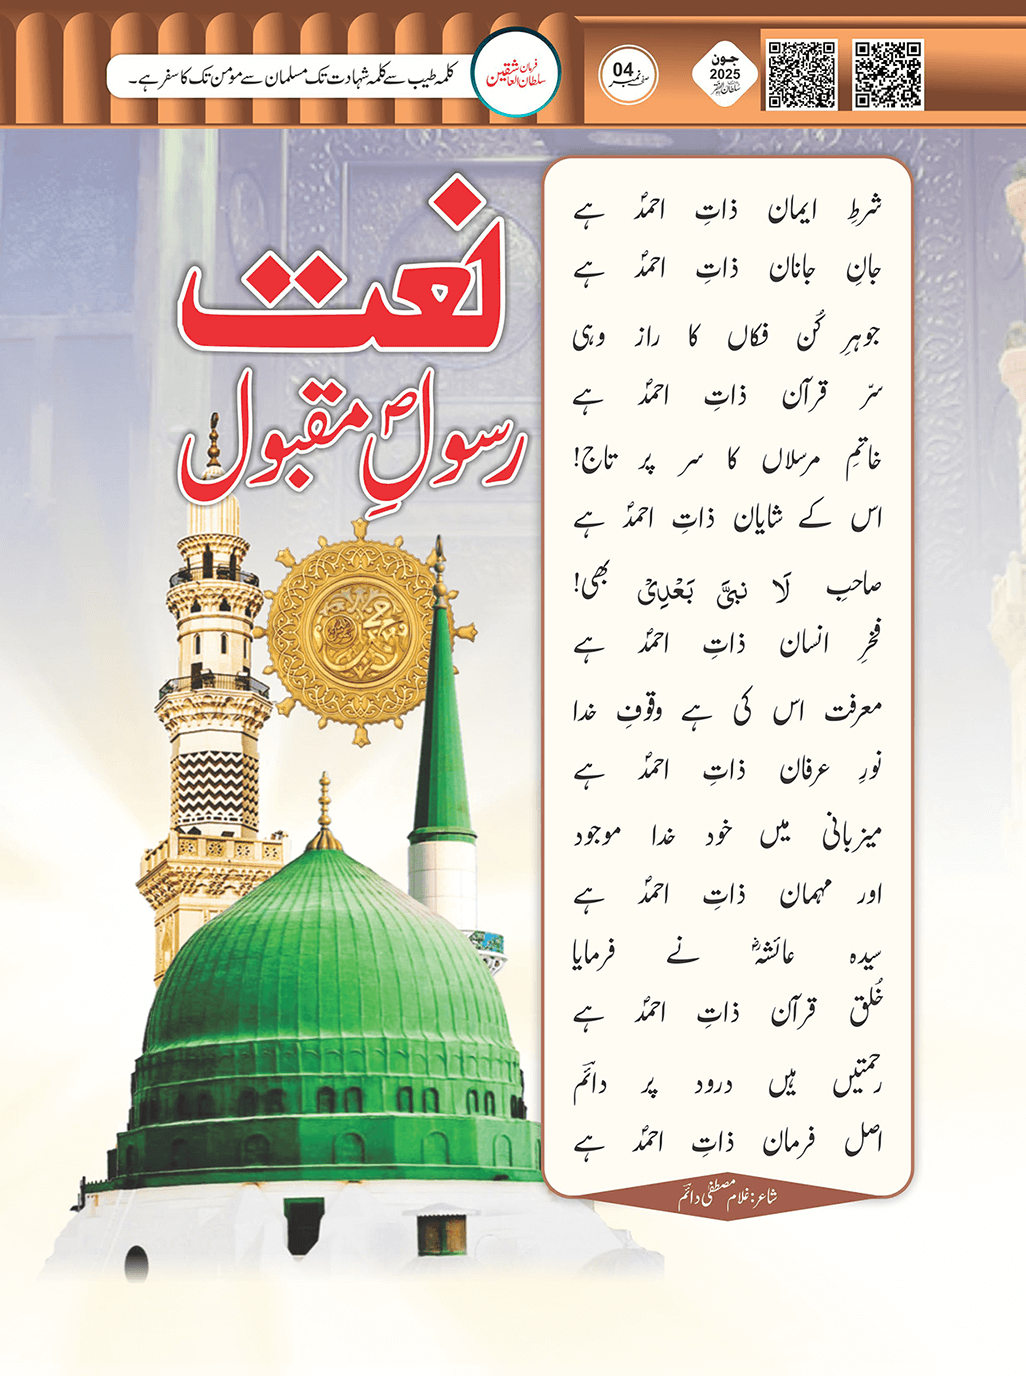 کلمہ طیب سے کلمہ شہادت تک مسلمان سے مومن تک کا سفر ہے۔
فرمان
سلطان العاشقین
صفحہ نمبر 04
جون
2025
نعت
رسولِ مقبولؐ
شرطِ ایمان ذاتِ احمدؐ ہے
جانِ جانان ذاتِ احمدؐ ہے
جوہرِ کُن فکاں کا راز وہی
سرّ قرآن ذاتِ احمدؐ ہے
خاتمِ مرسلاں کا سر پر تاج!
اس کے شایان ذاتِ احمدؐ ہے
صاحبِ لَا نبیَّ بَعْدِیْ بھی!
فخرِ انسان ذاتِ احمدؐ ہے
معرفت اس کی ہے وقوفِ خدا
نورِ عرفان ذاتِ احمدؐ ہے
میزبانی میں خود خدا موجود
اور مہمان ذاتِ احمدؐ ہے
سیدہ عائشہؓ نے فرمایا
خُلق قرآن ذاتِ احمدؐ ہے
رحمتیں ہیں درود پر دائمؔ
اصل فرمان ذاتِ احمدؐ ہے
شاعر: غلام مصطفیٰ دائمؔ